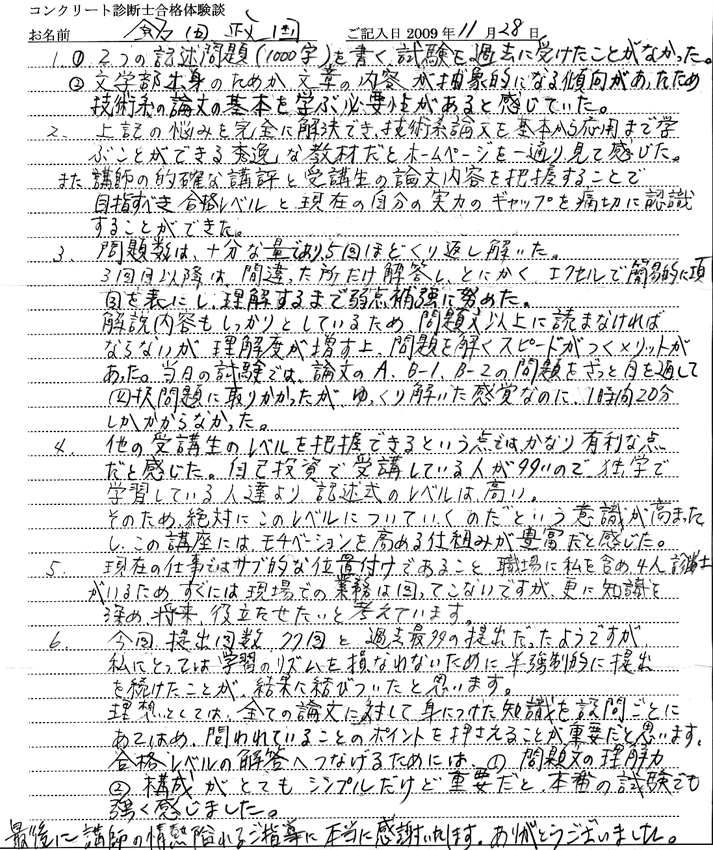 コンクリート診断士合格体験談
お名前 飯田 政国 ご記入日 2009年 11月 28日
1. ① 2つの記述問題(1000字)を書く試験を過去に受けたことがなかった。
② 文学部出身のためか 文章の内容が抽象的になる傾向があったため
技術系の論文の基本を学ぶ必要性があると感じていた。
2. 上記の悩みを完全に解決でき、技術系論文を基本から応用まで学
ぶことができる秀逸な教材だとホームページを一通り見て感じた。
また 講師の的確な講評と受講生の論文内容を把握することで
目指すべき合格レベルと現在の自分の実力のギャップを痛切に認識
することができた。
3. 問題数は、十分な量であり、5回ほどくり返し解いた。
3回目以降は、間違った所だけ解答し、とにかく、エクセルで簡易的に項
目を表にし、理解するまで弱点補強に努めた。
解説内容もしっかりとしているため、問題文以上に読まなければ
ならないが 理解度が増す上、問題を解くスピードがつくメリットが
あった。当日の試験では、論文のA、B-1、B-2の問題をざっと目を通して
四択問題に取りかかったが、ゆっくり解いた感覚なのに、1時間20分
しかかからなかった。
4. 他の受講生のレベルを把握できるという点ではかなり有利な点
だと感じた。自己投資で受講している人が多いので 独学で
学習している人達より 記述式のレベルは高い。
そのため、絶対にこのレベルについていくのだという意識が高まった
し、この講座には、モチベーションを高める仕組みが豊富だと感じた。
5. 現在の仕事ではサブ的な位置付けであること、職場に私を含め4人診断士
がいるため、すぐには現場での業務は回ってこないですが、更に知識を
深め、将来、役立たせたいと考えています。
6. 今回、提出回数 77回と 過去最多の提出だったようですが
私にとっては学習のリズムを損なわないために半強制的に提出
を続けたことが、結果に結びついたと思います。
理想としては、全ての論文に対して身につけた知識を設問ごとに
あてはめ、問われていることのポイントを押さえることが重要だと思います。
合格レベルの解答へつなげるためには、① 問題文の理解力
② 構成 が とても シンプルだけど重要だと、本番の試験でも
強く感じました。
最後に講師の情熱溢れるご指導に本当に感謝いたします。ありがとうございました。